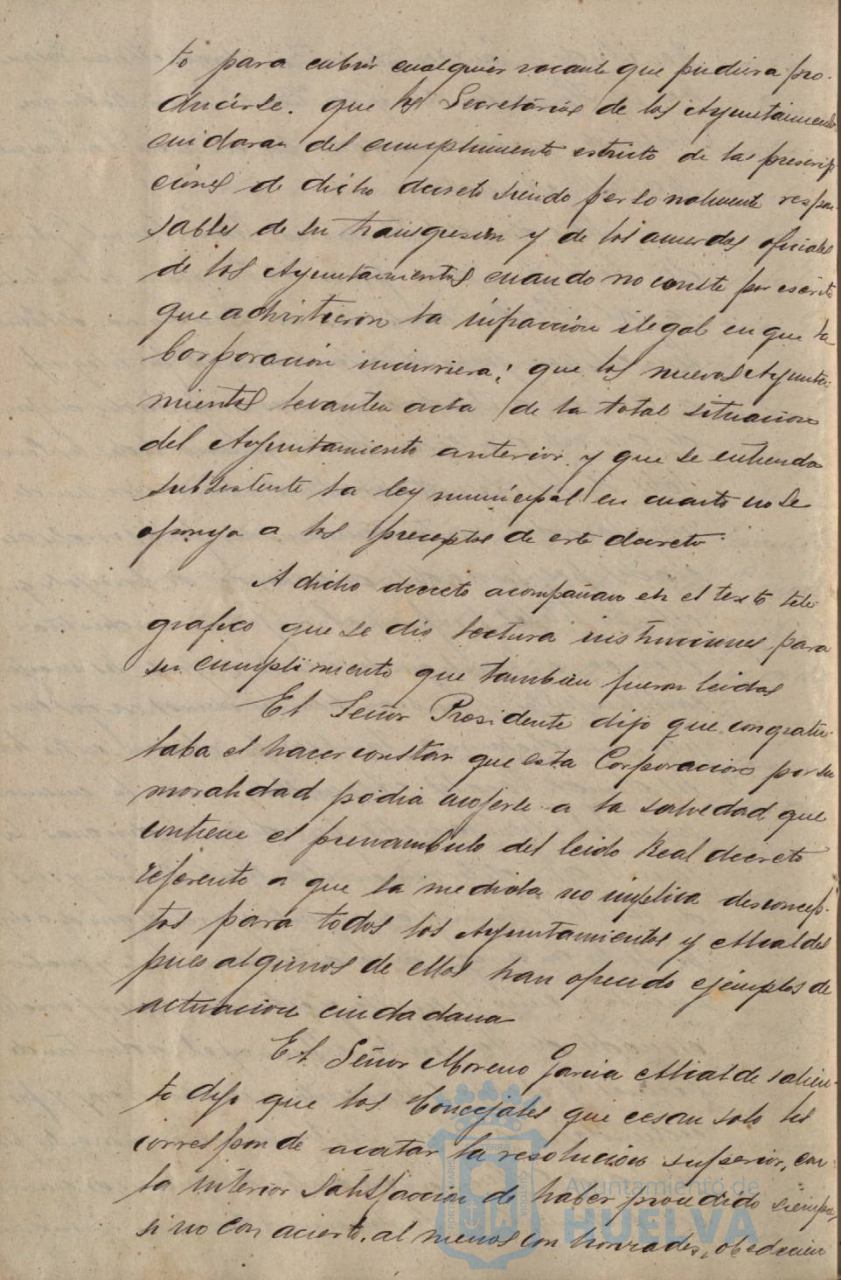 to para cubrir cualquier vacante que pudiera pro-
ducirse. que los Secretarios de los Ayuntamientos
cuidaran del cumplimiento estricto de las prescrip
ciones de dicho decreto siendo personalmente respon-
sables de su transgresion y de los acuerdos oficiales
de los Ayuntamientos cuando no conste por escrito
que advirtieron la infracción ilegal en que la
Corporación incurriera; que los nuevos Ayunta-
mientos levanten acta de la total situacion
del Ayuntamiento anterior y que se entienda
subsistente la ley municipal en cuanto no se
oponga a los preceptos de este decreto.
A dicho decreto acompañan en el texto tele
grafico que se dio lectura instrucciones para
su cumplimiento que tambien fueron leidas
El Señor Presidente dijo que congratu-
laba el hacer constar que esta Corporacion por su
moralidad podia acojerse a la salvedad que
contiene el preuambulo del leido Real decreto
referente a que la medida no implica desconcep-
tos para todos los Ayuntamientos y Alcaldes
pues algunos de ellos han ofrecido ejemplos de
actuacion ciudadana
El Señor Moreno Garcia Alcalde salien-
te dijo que los Concejales que cesan solo les
corresponde acatar la resolucion superior, con
la interior satisfaccion de haber procedido siempre,
si no con acierto, al menos con honradez, obedecien
Ayuntamiento de
HUELVA